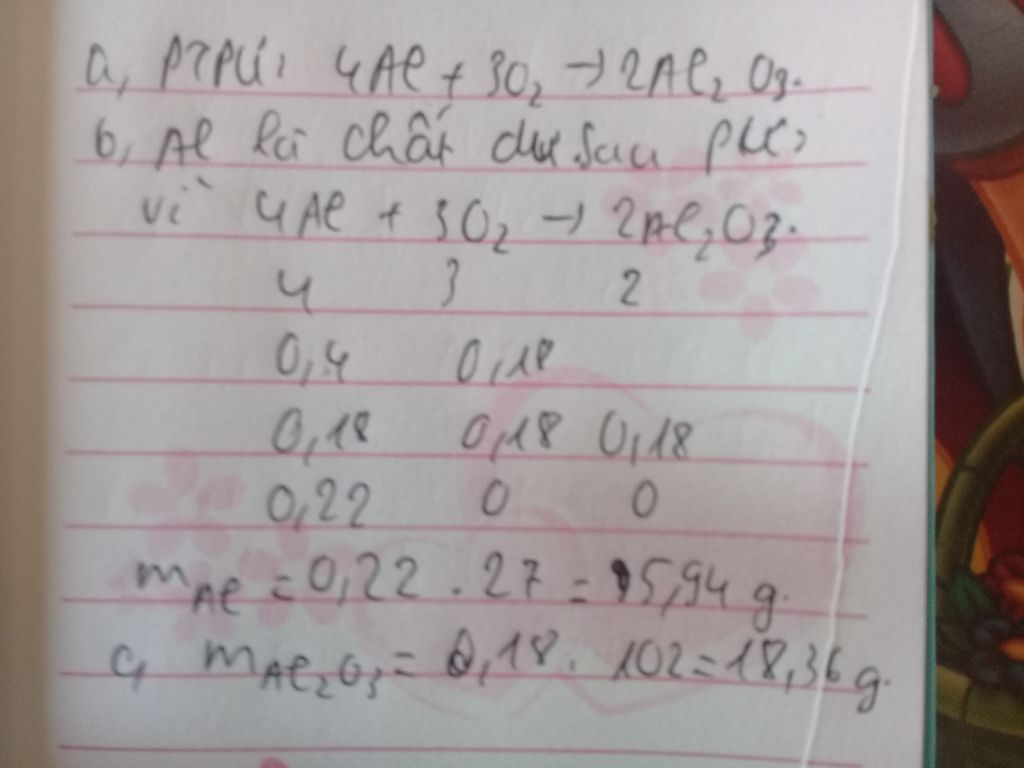 a, PTPƯ: 4Al + 3O₂ → 2Al₂O₃.
b, Al là chất dư sau PƯ,
vì 4Al + 3O₂ → 2Al₂O₃.
4 3 2
0,4 0,18
0,18 0,18 0,18
0,22 0 0
mAl = 0,22 . 27 = 5,94 g.
c, mAl₂O₃ = 0,18 . 102 = 18,36 g.